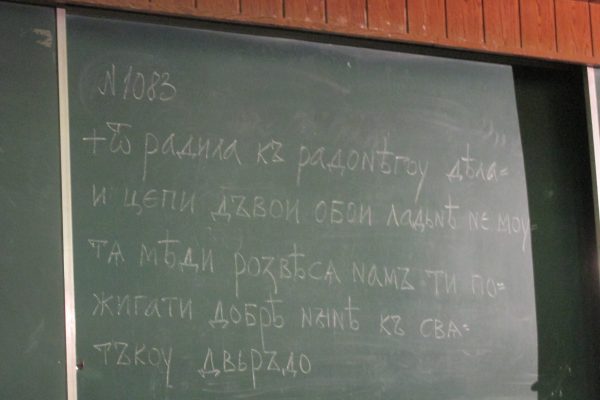 N1083
+ѿ радила къ радонѣгоу дѣла=
и цепи дъвои обои ладьнѣ не моу=
та мѣди розвѣса намъ ти по=
жигати добрѣ нынѣ къ сва=
тъкоу двьръдо